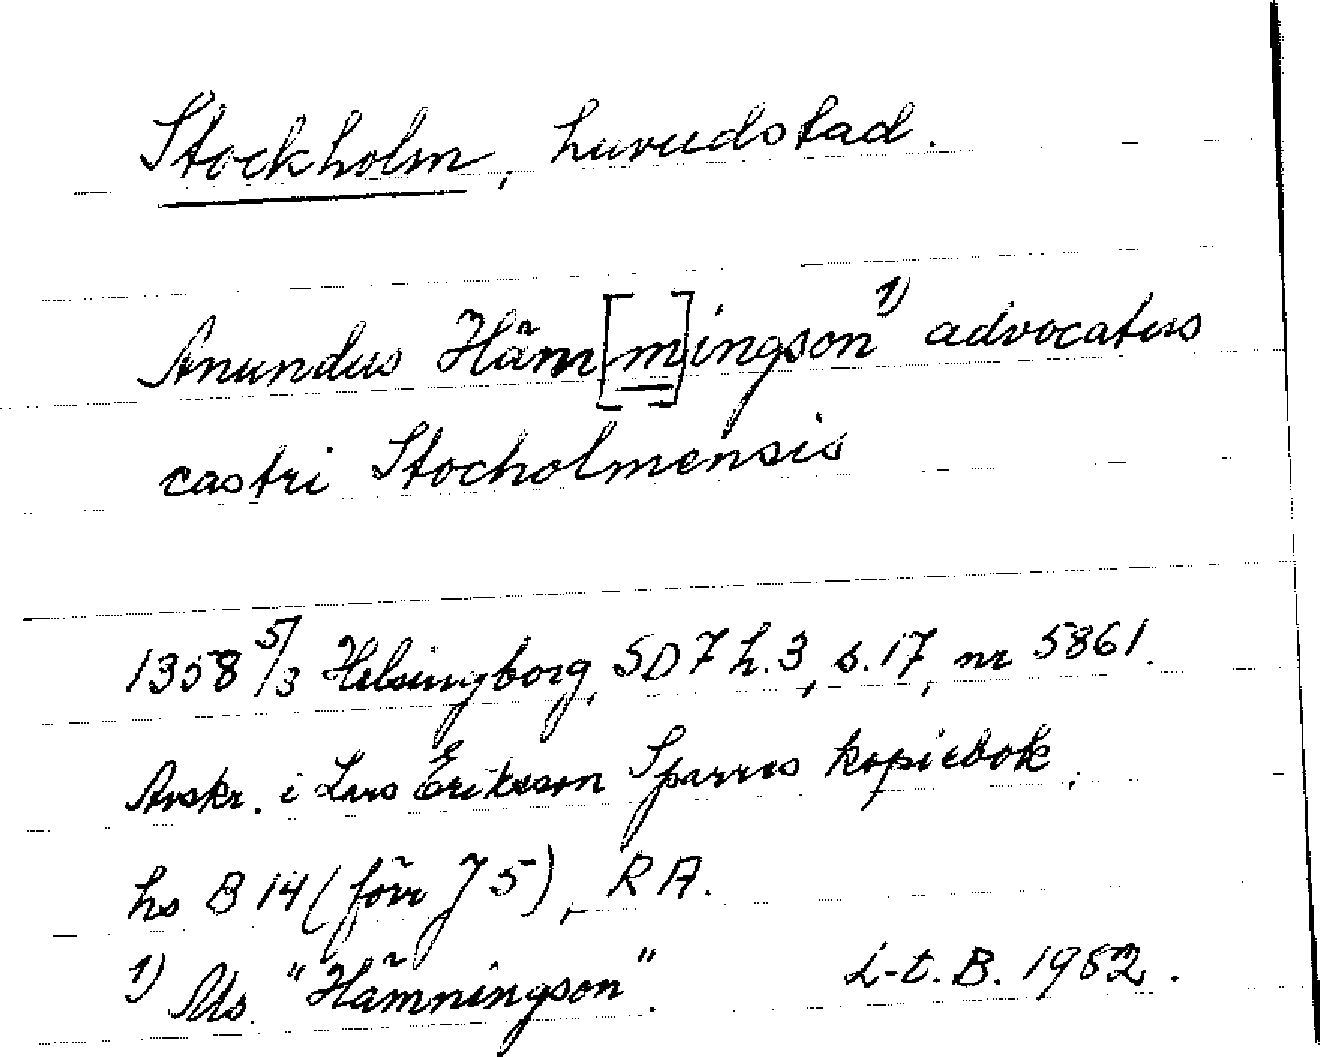 Stockholm, huvudstad.
Anundus Häm[m]ingson 1) advocatus
castri Stocholmensis
1358 5/3 Helsingborg, SD 7 h.3, s.17, nr 5861.
Avskr. i Lars Eriksson Sparres kopiebok,
hs B 14 (förr J 5), RA.
1) Ms. "Hämningson". L-t. B. 1982.